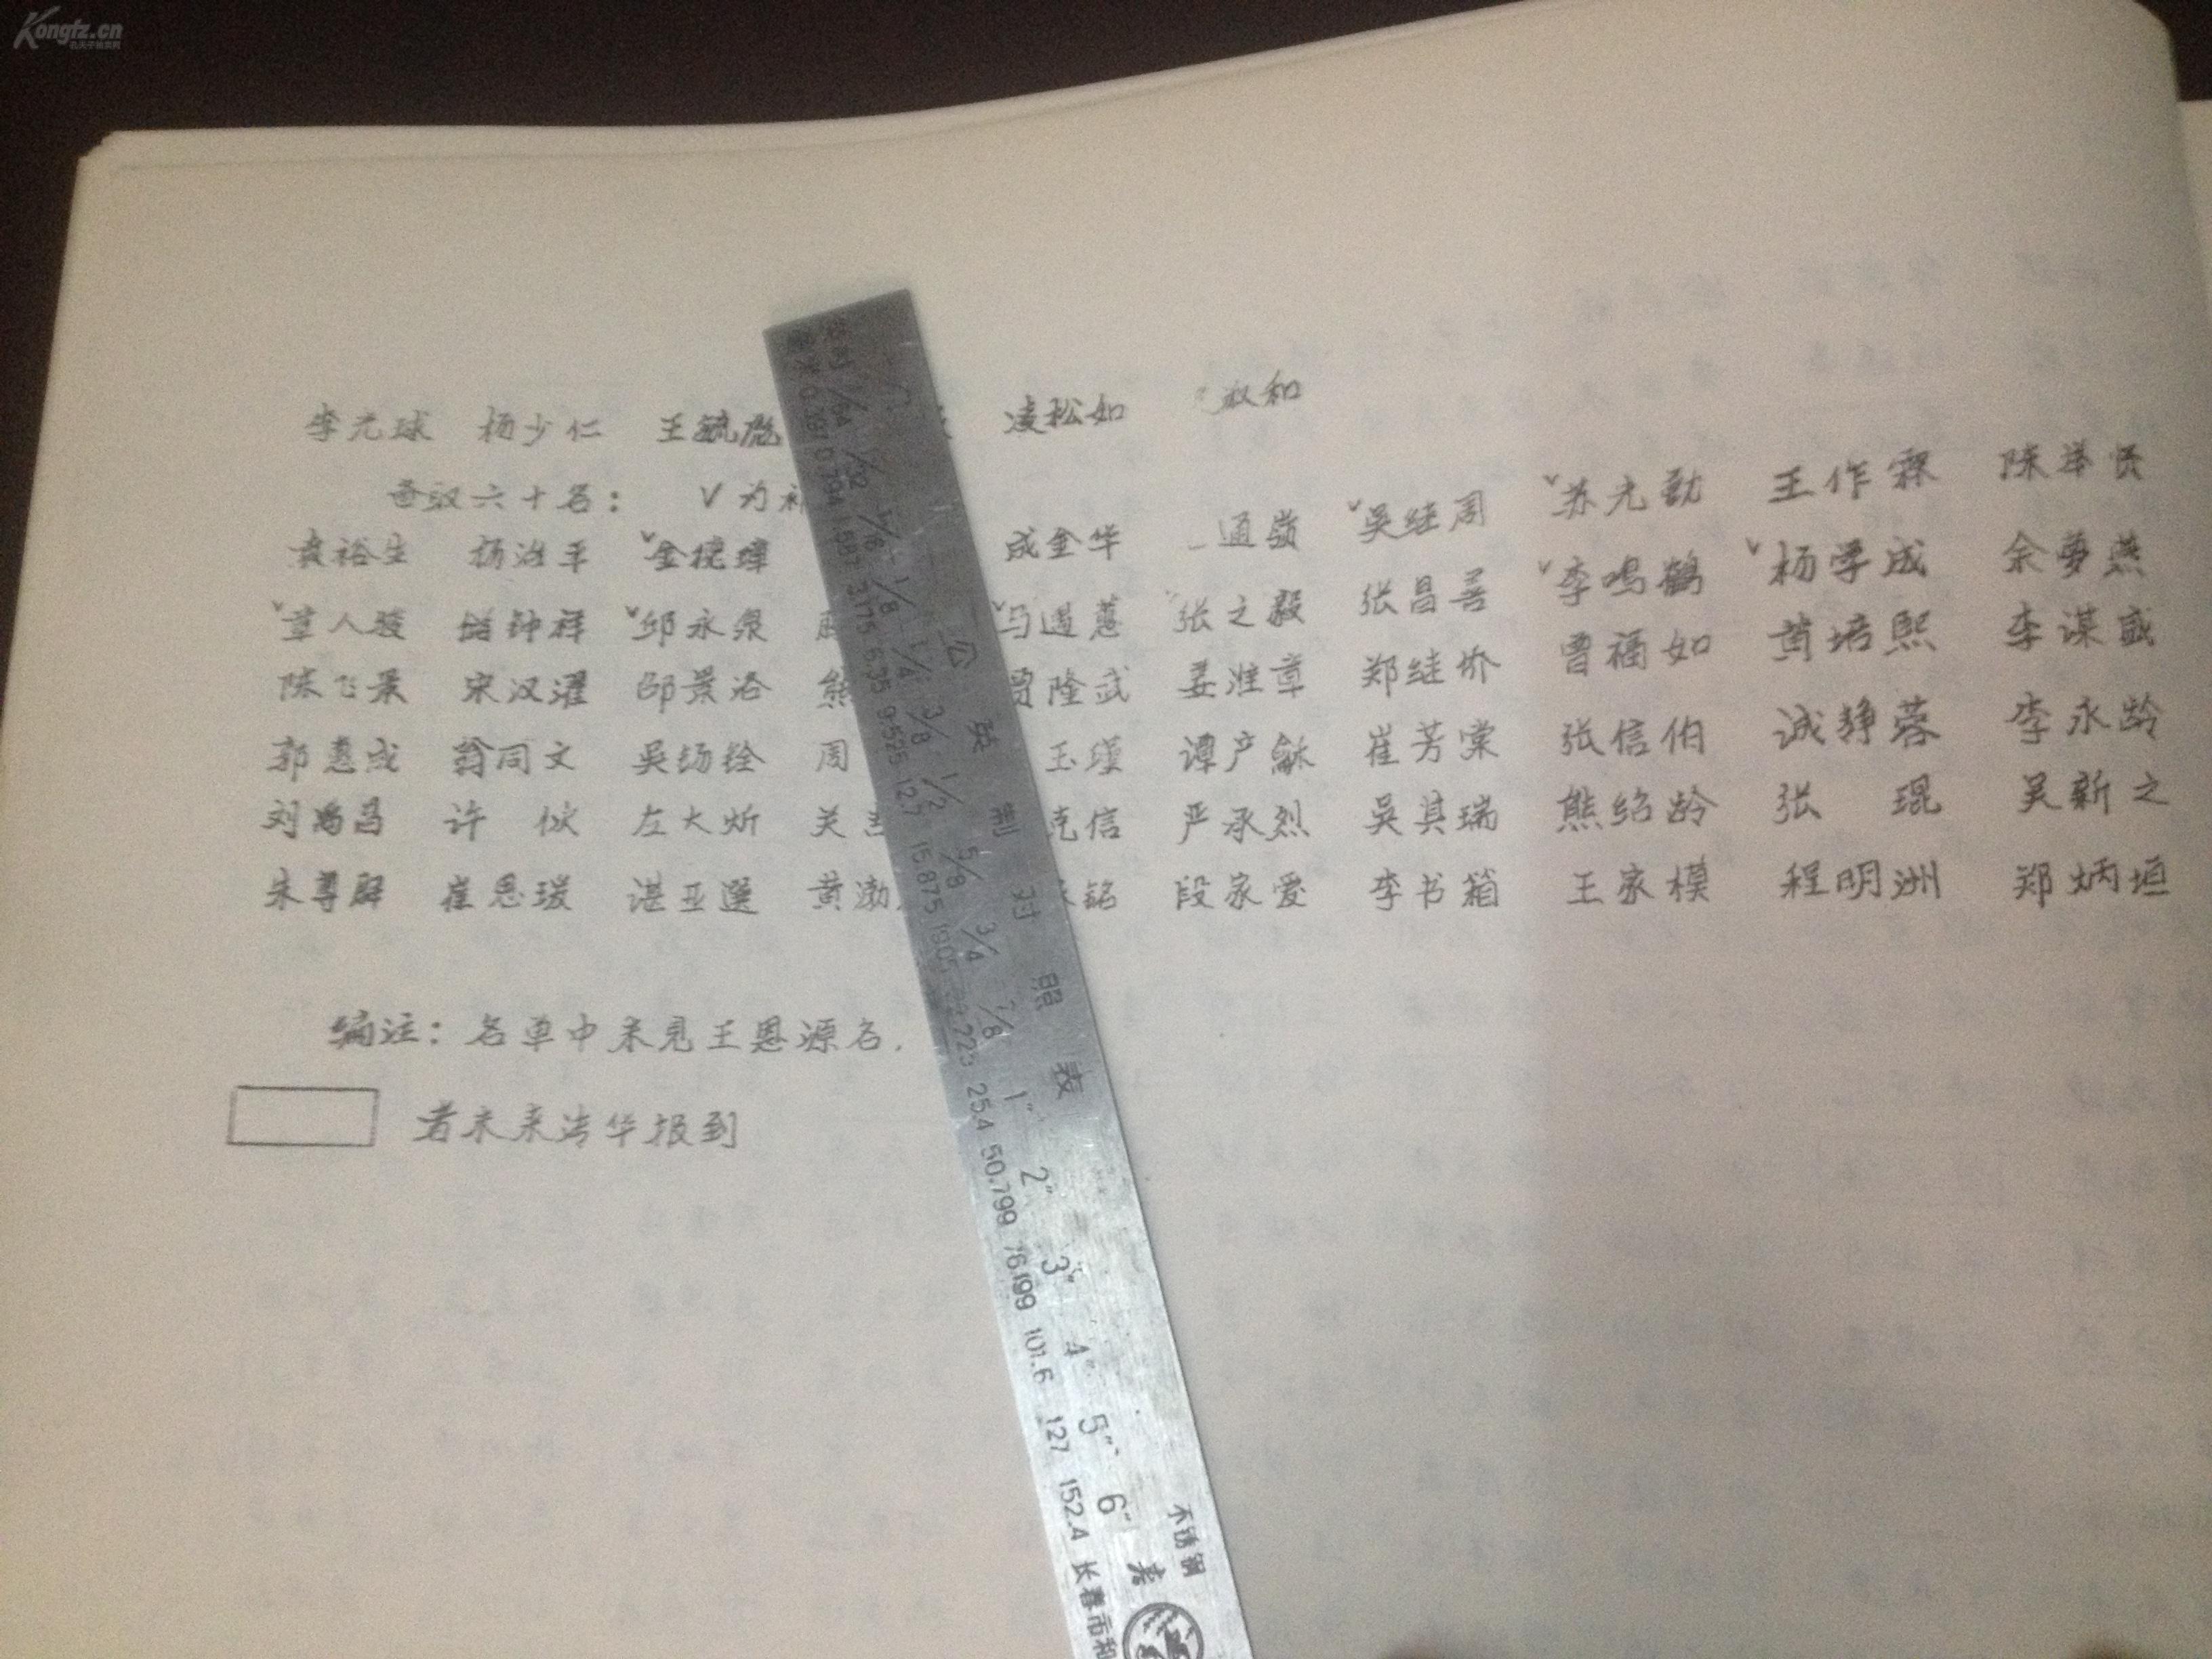 Kongfz.cn
李元球 杨少仁 王毓彪 凌松如 叔和
备取六十名: V为补
袁裕生 杨治平 V金棪璋 成金华 通岭 V吴继周 V苏元勤 王作霖 陈举贤
V章人骏 钟祥 V邱永泉 V冯遇蕙 张之毅 张昌善 V李鸣鹤 V杨学成 余梦燕
陈飞景 宋汉濯 邵景洛 熊 贾隆武 姜淮章 郑继价 曹福如 黄培熙 李谋盛
郭惠成 翁同文 吴铨 周 玉瑾 谭产龢 崔芳棠 张信伯 诚静蓉 李永龄
刘禹昌 许 左大炘 关 克信 严承烈 吴其瑞 熊绍龄 张 琨 吴新之
朱尊 崔思瑗 谌亚选 黄渤 铭 段家爱 李书箱 王家模 程明洲 郑炳垣
编注: 名单中未见王恩源名.
者未来清华报到
公 英 制 对 照 表
1/64 1/32 1/16 1/8 1/4 3/8 1/2 5/8 3/4 7/8 1″ 2″ 3″ 4″ 5″ 6″
0.397 0.794 1.587 3.175 6.35 9.525 12.7 15.875 19.05 22.225 25.4 50.799 76.199 101.6 127 152.4
不锈钢
长春市和